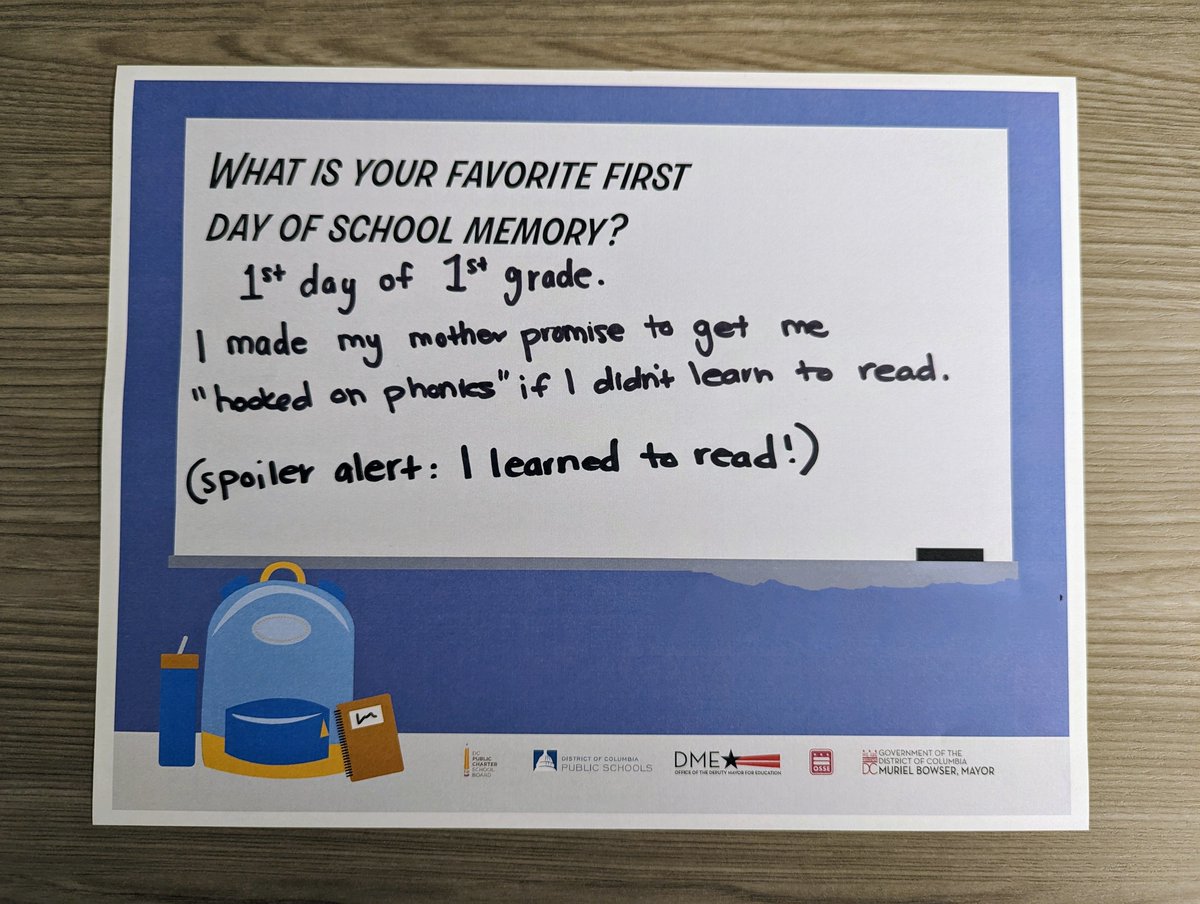 WHAT IS YOUR FAVORITE FIRST
DAY OF SCHOOL MEMORY?
1st day of 1st grade.
I made my mother promise to get me
"hooked on phonics" if I didn't learn to read.
(spoiler alert: I learned to read!)
DC
PUBLIC
CHARTER
SCHOOL
BOARD
DISTRICT OF COLUMBIA
PUBLIC SCHOOLS
DME
OFFICE OF THE DEPUTY MAYOR FOR EDUCATION
OSSE
GOVERNMENT OF THE
DISTRICT OF COLUMBIA
DC MURIEL BOWSER, MAYOR